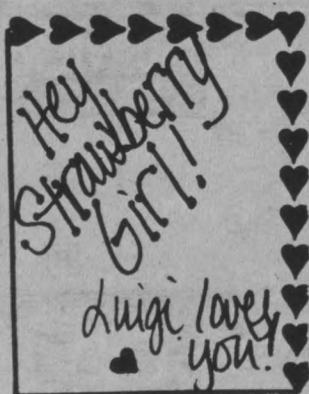 Hey
Strawberry
Girl!
Luigi loves
you!